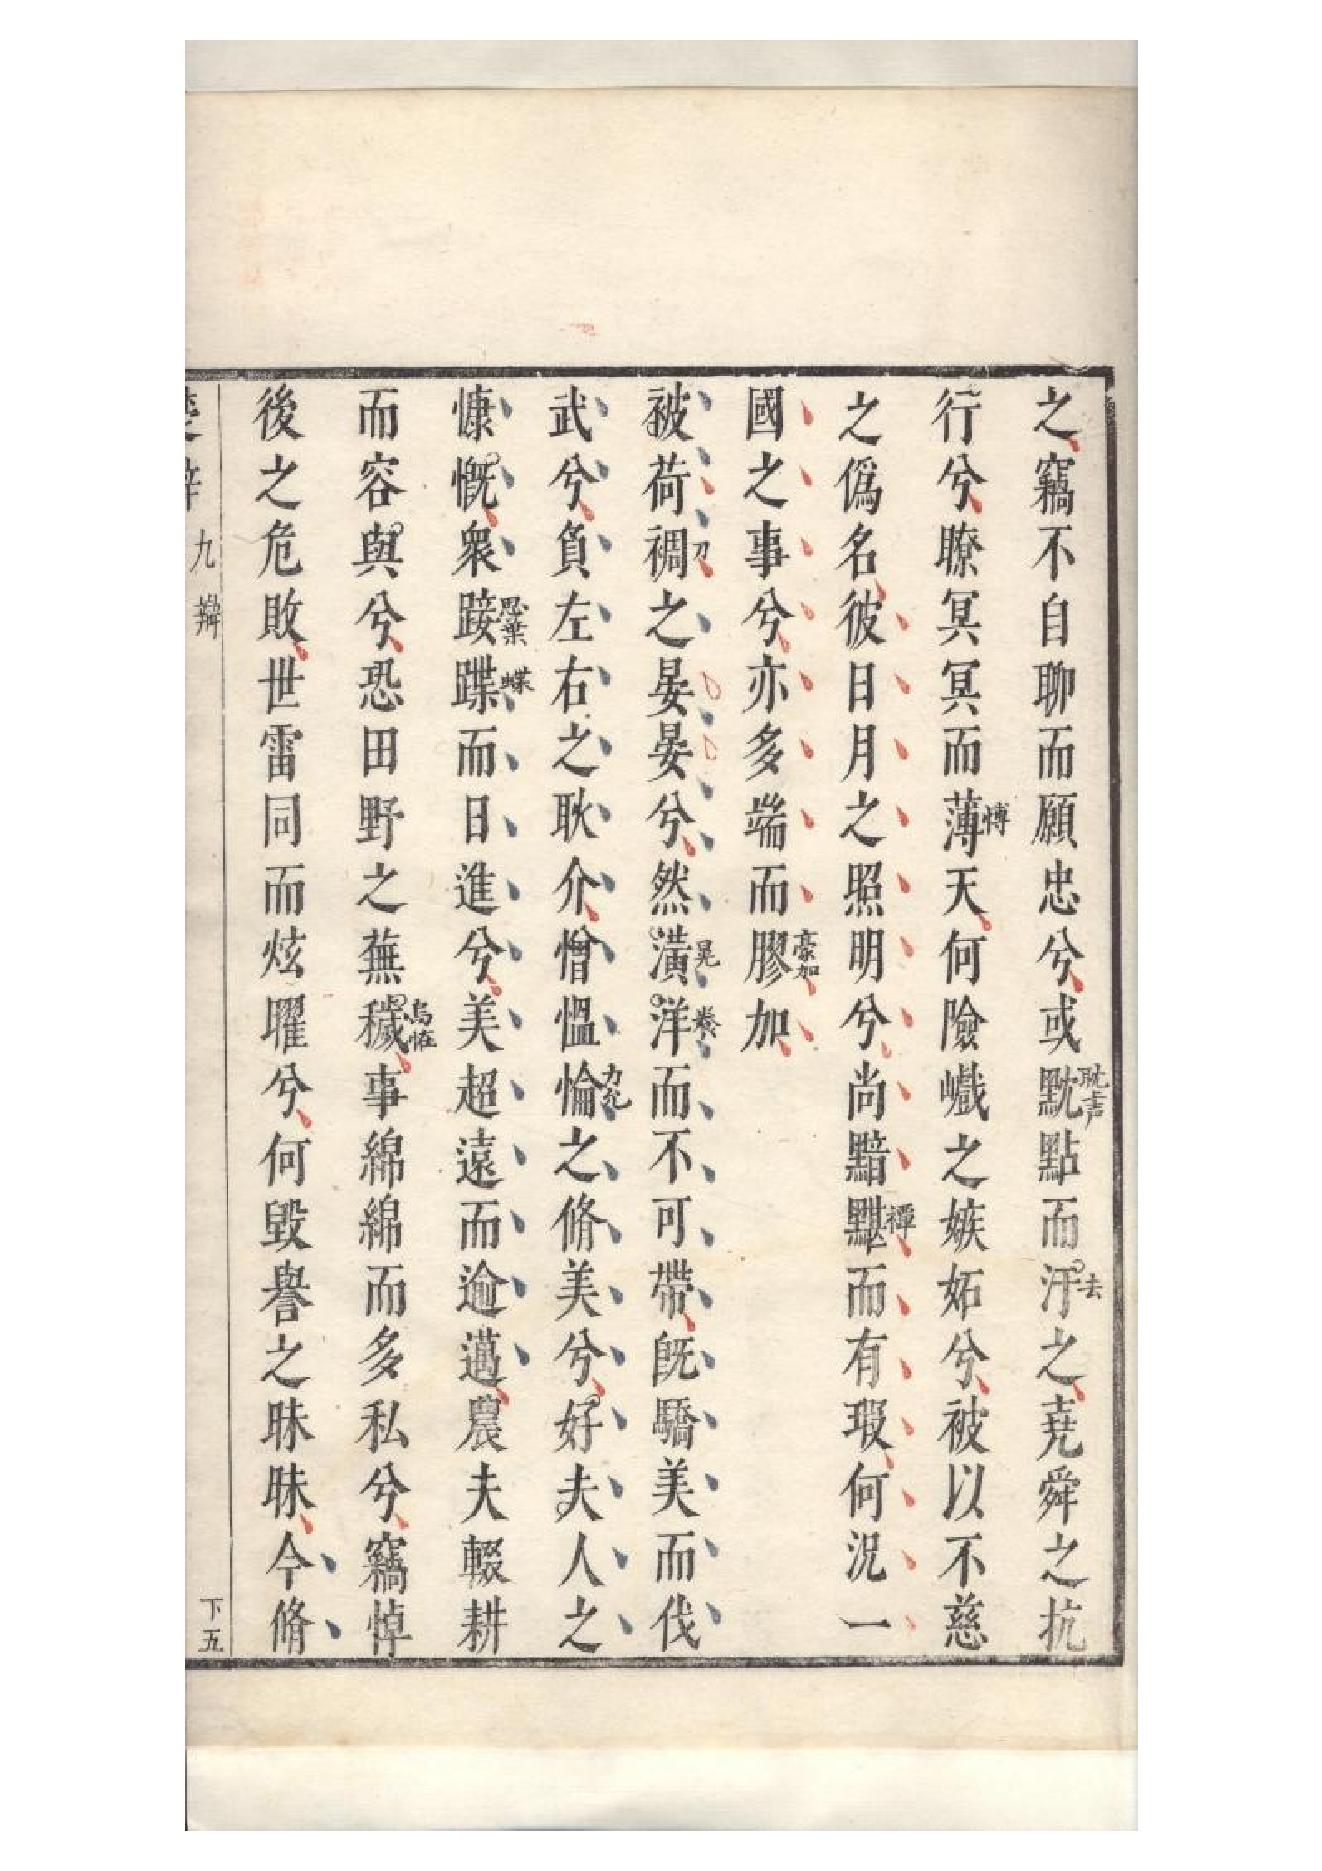 之竊不自聊而願忠兮或黕耽上声點而汙去之堯舜之抗
行兮瞭冥冥而薄愽天何險巇之嫉妬兮被以不慈
之僞名彼日月之照明兮尚黯黮禫而有瑕何況一
國之事兮亦多端而膠豪加加
被荷裯刀之晏晏兮然潢晃洋養而不可帶既驕美而伐
武兮負左右之耿介憎慍惀力允之脩美兮好夫人之
慷慨衆踥思葉蹀蝶而日進兮美超遠而逾邁農夫輟耕
而容與兮恐田野之蕪穢烏怪事綿綿而多私兮竊悼
後之危敗世雷同而炫曜兮何毀譽之昧昧今脩
楚辭 九辯 下五